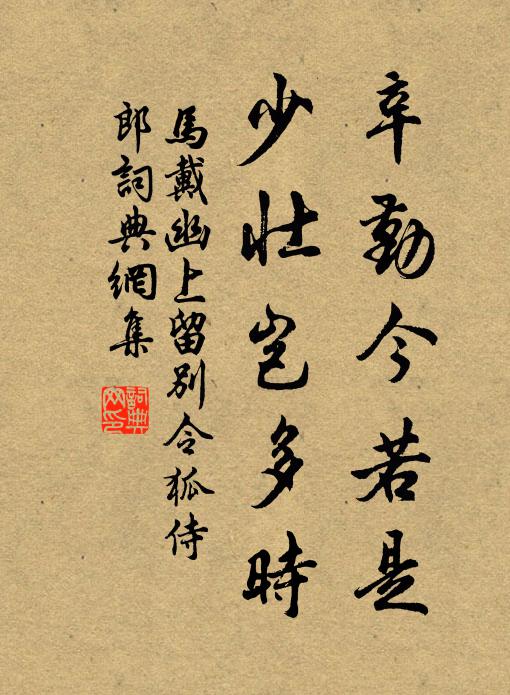 辛勤今若是
少壯豈多時
馬戴豳上留別令狐侍
郎詞典網集
詞典網印